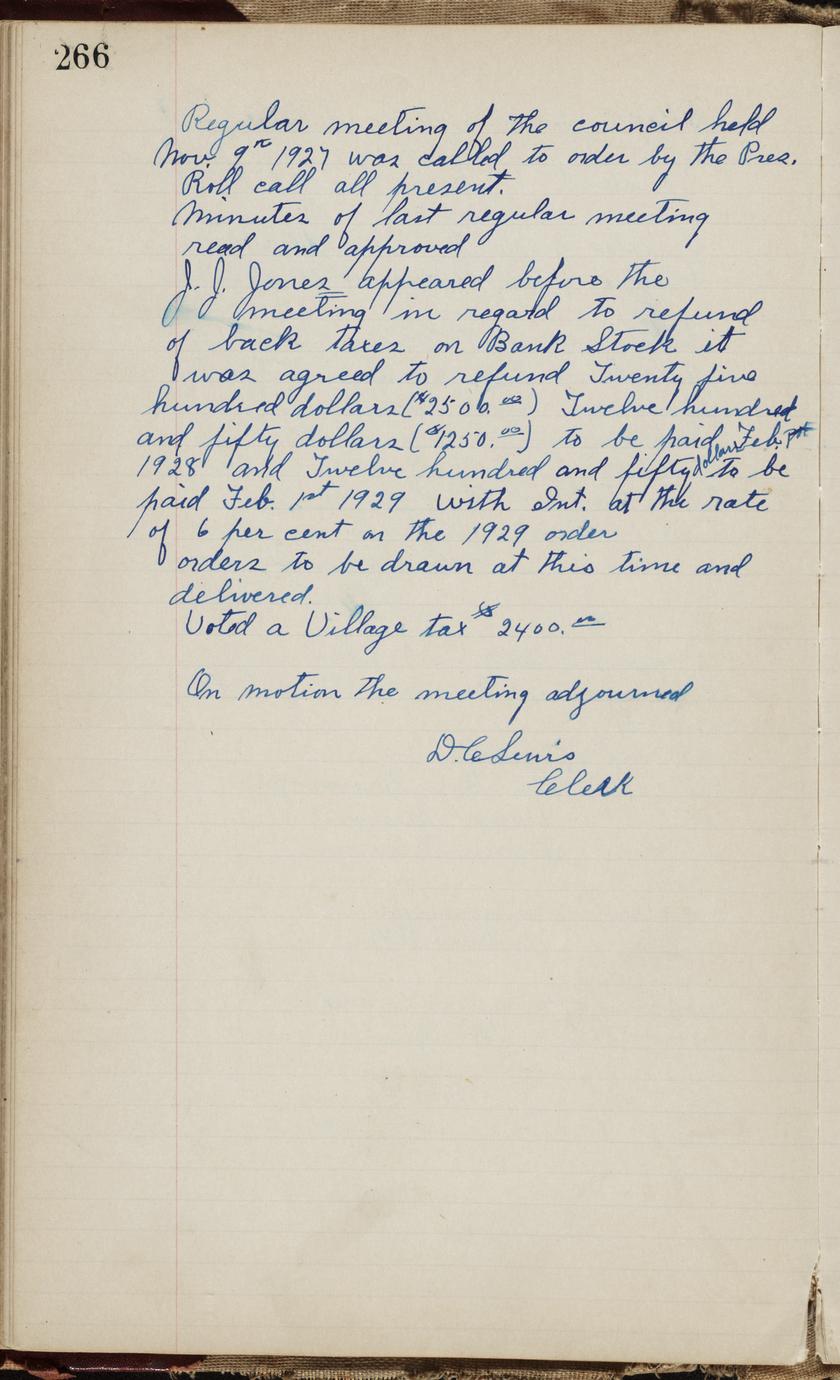 266
Regular meeting of the council held
Nov. 9th 1927 was called to order by the Pres.
Roll call all present.
Minutes of last regular meeting
read and approved
J. J. Jones appeared before the
meeting in regard to refund
of back taxes on Bank Stock it
was agreed to refund Twenty five
hundred dollars ($2500.00) Twelve hundred
and fifty dollars ($1250.00) to be paid Feb. 1st
1928 and Twelve hundred and fifty dollars to be
paid Feb. 1st 1929 with Int. at the rate
of 6 per cent on the 1929 order
orders to be drawn at this time and
delivered.
Voted a Village tax $ 2400.00
On motion the meeting adjourned
D. C. Lewis
Clerk